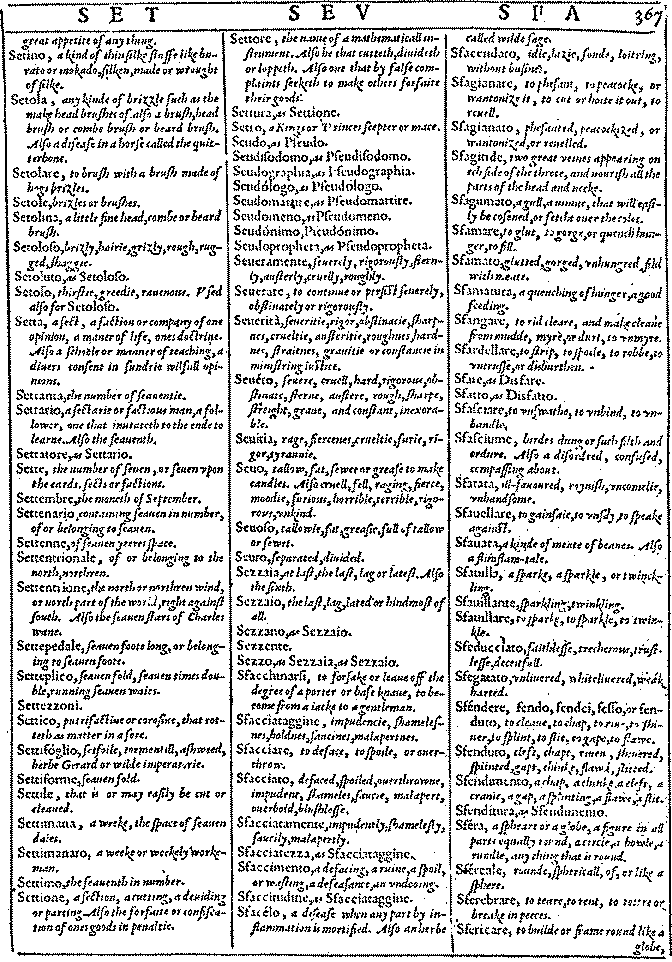 SET SEV SFA 367
great appetite of any thing.
Setino, a kind of thin silke stuffe like bu-
rato or mokado, silken, made or wrought
of silke.
Setola, any kinde of brizzle such as the
make head brushes of. also a brush, head
brush or combe brush or beard brush.
Also a disease in a horse called the quit-
terbone.
Setolare, to brush with a brush made of
hogs brizles.
Setole, brizles or brushes.
Setolina, a little fine head, combe or beard
brush.
Setoloso, brizly, hairie, grizly, rough, rug-
ged, shaggie.
Setoluto, as Setoloso.
Setoso, thirstie, greedie, ravenous. Vsed
also for Setoloso.
Setta, a sect, a faction or company of one
opinion, a maner of life, ones doctrine.
Also a schoole or manner of teaching, a
diuers consent in sundrie wilfull opi-
nions.
Settanta, the number of seauentie.
Settario, a sectarie or factious man, a fol-
lower, one that imitateth to the ende to
learne. Also the seauenth.
Settatore, as Settario.
Sette, the number of seuen, or seuen vpon
the cards. sects or factions.
Settembre, the moneth of September.
Settenario, containing seauen in number,
of or belonging to seauen.
Settenne, of seauen yeeres space.
Settentrionale, of or belonging to the
north, northren.
Settentrione, the north or northren wind,
or north part of the world, right against
south. Also the seauen stars of Charles
wane.
Settepedale, seauen foote long, or belong-
ing to seauen foote.
Setteplico, seauen fold, seauen times dou-
ble, running seauen waies.
Settezzoni.
Settico, putrifactiue or corosiue, that rot-
teth as matter in a sore.
Settifóglio, setfoile, tormentill, ashweed,
herbe Gerard or wilde imperatorie.
Settiforme, seauen fold.
Settile, that is or may easily be cut or
cleaued.
Settimana, a weeke, the space of seauen
daies.
Settimanaro, a weeke or weekely worke-
man.
Settimo, the seauenth in number.
Settione, a section, a cutting, a deuiding
or parting. Also the forfaite or confisca-
tion of ones goods in penaltie.
Settore, the name of a mathematicall in-
strument. Also he that cutteth, divideth
or loppeth. Also one that by false com-
plaints seeketh to make others forfaite
their goods.
Settura, as Settione.
Settro, a Kings or Princes scepter or mace.
Seudo, as Pseudo.
Seudisodomo, as Pseudisodomo.
Seudographia, as Pseudographia.
Seudólogo, as Pseudologo.
Seudomartire, as Pseudomartire.
Seudomeno, as Pseudomeno.
Seudónimo, Pseudónimo.
Seudopropheta, as Pseudopropheta.
Seueramente, seuerely, rigorously, stern-
ly, austerly, cruelly, roughly.
Seuerare, to continue or persist seuerely,
obstinately or rigorously.
Seuerità, seueritie, rigor, obstinacie, sharp-
nes, crueltie, austeritie, roughnes, hard-
nes, straitnes, grauitie or constancie in
ministring iustice.
Seuéro, seuere, cruell, hard, rigorous, ob-
stinate, sterne, austere, rough, sharpe,
streight, graue, and constant, inexora-
ble.
Seuitia, rage, fiercenes, crueltie, furie, ri-
gor, tyrannie.
Seuo, tallow, fat, sewet or grease to make
candles. Also cruell, fell, raging, fierce,
moodie, furious, horrible, terrible, rigo-
rous, vnkind.
Seuoso, tallowie, fat, greasie, full of tallow
or sewet.
Seuro, separated, divided.
Sezzaia, at last, the last, lag or latest. Also
the sixth.
Sezzaio, the last, lag, lated or hindmost of
all.
Sezzano, as Sezzaio.
Sezzente.
Sezzo, as Sezzaia, as Sezzaio.
Sfacchinarsi, to forsake or leaue off the
degree of a porter or base knaue, to be-
come from a iacke to a gentleman.
Sfacciataggine, impudencie, shamelesse-
nes, boldnes, saucines, malapertnes.
Sfacciare, to deface, to spoile, or ouer-
throw.
Sfacciato, defaced, spoiled, ouerthrowne,
impudent, shameles, saucie, malapert,
ouerbold, blushlesse.
Sfacciatamente, impudently, shamelesly,
saucily, malapertly.
Sfacciatezza, as Sfacciataggine.
Sfaccimento, a defacing, a ruine, a spoil,
or wasting, a defeasance, an vndooing.
Sfacciudine, as Sfacciataggine.
Sfacélo, a disease when any part by in-
flammation is mortified. Also an herbe
called wilde sage.
Sfacendato, idle, lazie, fonde, loitring,
without busines.
Sfagianare, to phesant, to peacocke, or
wantonize it, to cut or hoite it out, to
reuell.
Sfagianato, phesanted, peacockized, or
wantonized, or reuelled.
Sfagitide, two great veines appearing on
ech side of the throte, and nourish all the
parts of the head and necke.
Sfagumato, a gull, a ninnie, that will easi-
ly be cosened, or fetcht ouer the coles.
Sfamare, to glut, to gorge, or quench hun-
ger, to fill.
Sfamato, glutted, gorged, vnhungred, fild
with meate.
Sfamatura, a quenching of hunger, a good
feeding.
Sfangare, to rid cleare, and make cleane
from mudde, myre, or durt, to vnmyre.
Sfardellare, to strip, to spoile, to robbe, to
vntrusse, or disburthen.
Sfare, as Disfare.
Sfatto, as Disfatto.
Sfasciare, to vnswathe, to vnbind, to vn-
bandle.
Sfasciume, burdes dung or such filth and
ordure. Also a disordred, confused,
compassing about.
Sfatata, ill-fauoured, roynish, vncomelie,
vnhandsome.
Sfauellare, to gainsaie, to vnsay, to speake
against.
Sfauata, a kinde of meate of beanes. Also
a flimflam-tale.
Sfauilla, a sparke, a sparkle, or twinck-
ling.
Sfauillante, sparkling, twinkling.
Sfauillare, to sparke, to sparkle, to twin-
kle.
Sfeducciato, faithlesse, trecherous, trust-
lesse, deceitfull.
Sfegatato, vnlivered, whitelivered, weak
harted.
Sféndere, fendo, fendei, fesso, or fen-
duto, to cleaue, to chap, to riue, to shi-
uer, to splint, to slit, to gape, to flawe.
Sfenduto, cleft, chapt, riuen, shiuered,
splinted, gapt, chinkt, flawd, slitted.
Sfendimento, a chap, a chinke, a cleft, a
cranie, a gap, a splinting, a flawe, a slit.
Sfenditura, as Sfendimento.
Sféra, a spheare or a globe, a figure in all
parts equally round, a circle, a bowle, a
rundle, any thing that is round.
Sfereale, rounde, sphericall, of, or like a
sphere.
Sferebrare, to teare, to rent, to
breake in peeces.
Sfericare, to builde or frame round like a
globe,